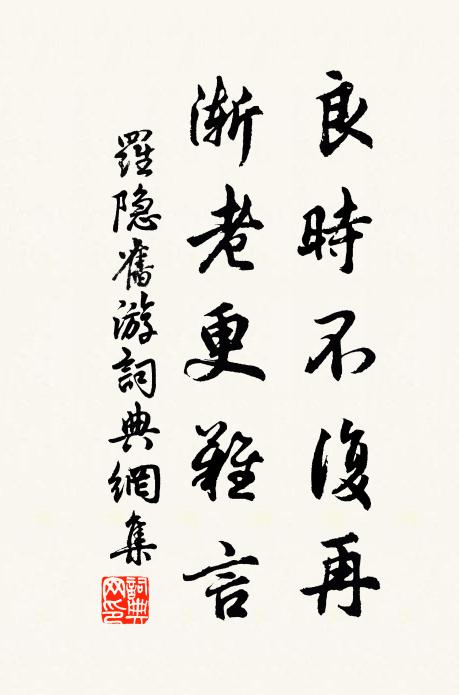 良時不復再
漸老更難言
羅隐舊游詞典網集
詞典網印